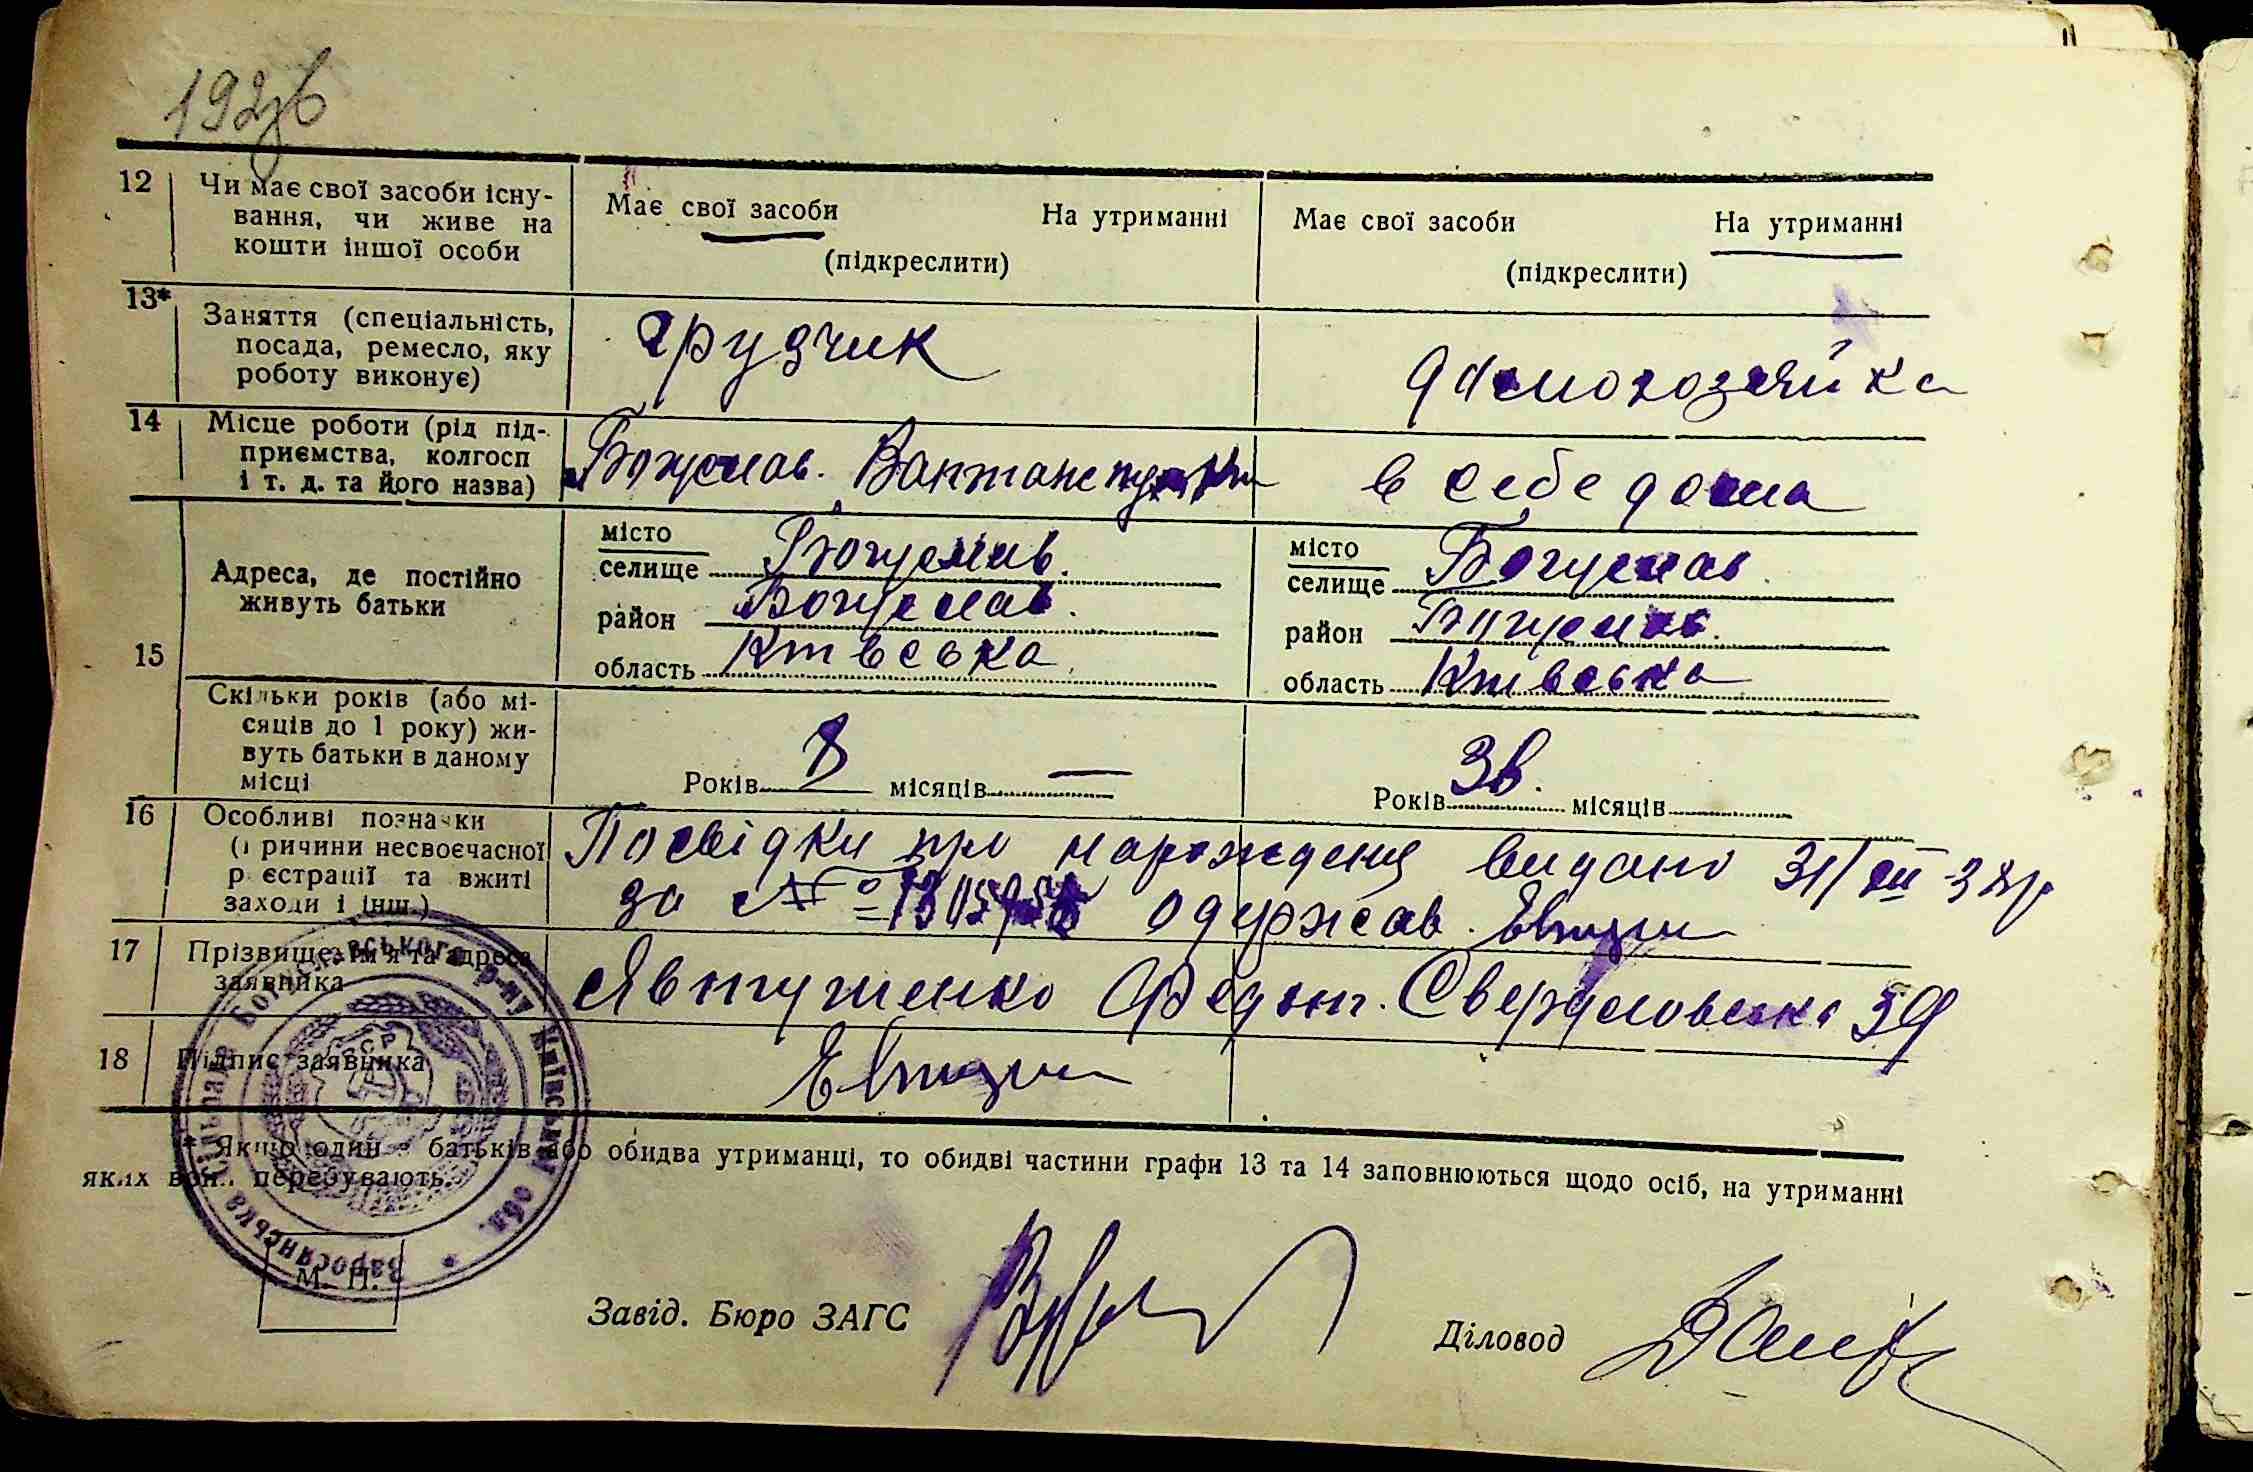 12 Чи має свої засоби існу-
вання, чи живе на
кошти іншої особи
Має свої засоби На утриманні
(підкреслити)
Має свої засоби На утриманні
(підкреслити)
13* Заняття (спеціальність,
посада, ремесло, яку
роботу виконує)
грузчик
домохозяйка
14 Місце роботи (рід під-
приємства, колгосп
і т. д. та його назва)
Богуслав.
в себе дома
15 Адреса, де постійно
живуть батьки
місто
селище Богуслав.
район Богуслав.
область Київська
місто
селище Богуслав
район Богуслав.
область Київська
Скільки років (або мі-
сяців до 1 року) жи-
вуть батьки в даному
місці
Років 8 місяців —
Років місяців
16 Особливі позначки
(причини несвоєчасної
реєстрації та вжиті
заходи і інш.)
Посвідку про народження видано 31/XII-38р
за № одержав.
17 Прізвище, ім'я та адреса
заявника
Явтушенко Федот. Свердловська 39
18 Підпис заявника
* Якщо один з батьків або обидва утриманці, то обидві частини графи 13 та 14 заповнюються щодо осіб, на утриманні
яких вони перебувають.
М. П.
Завід. Бюро ЗАГС
Діловод